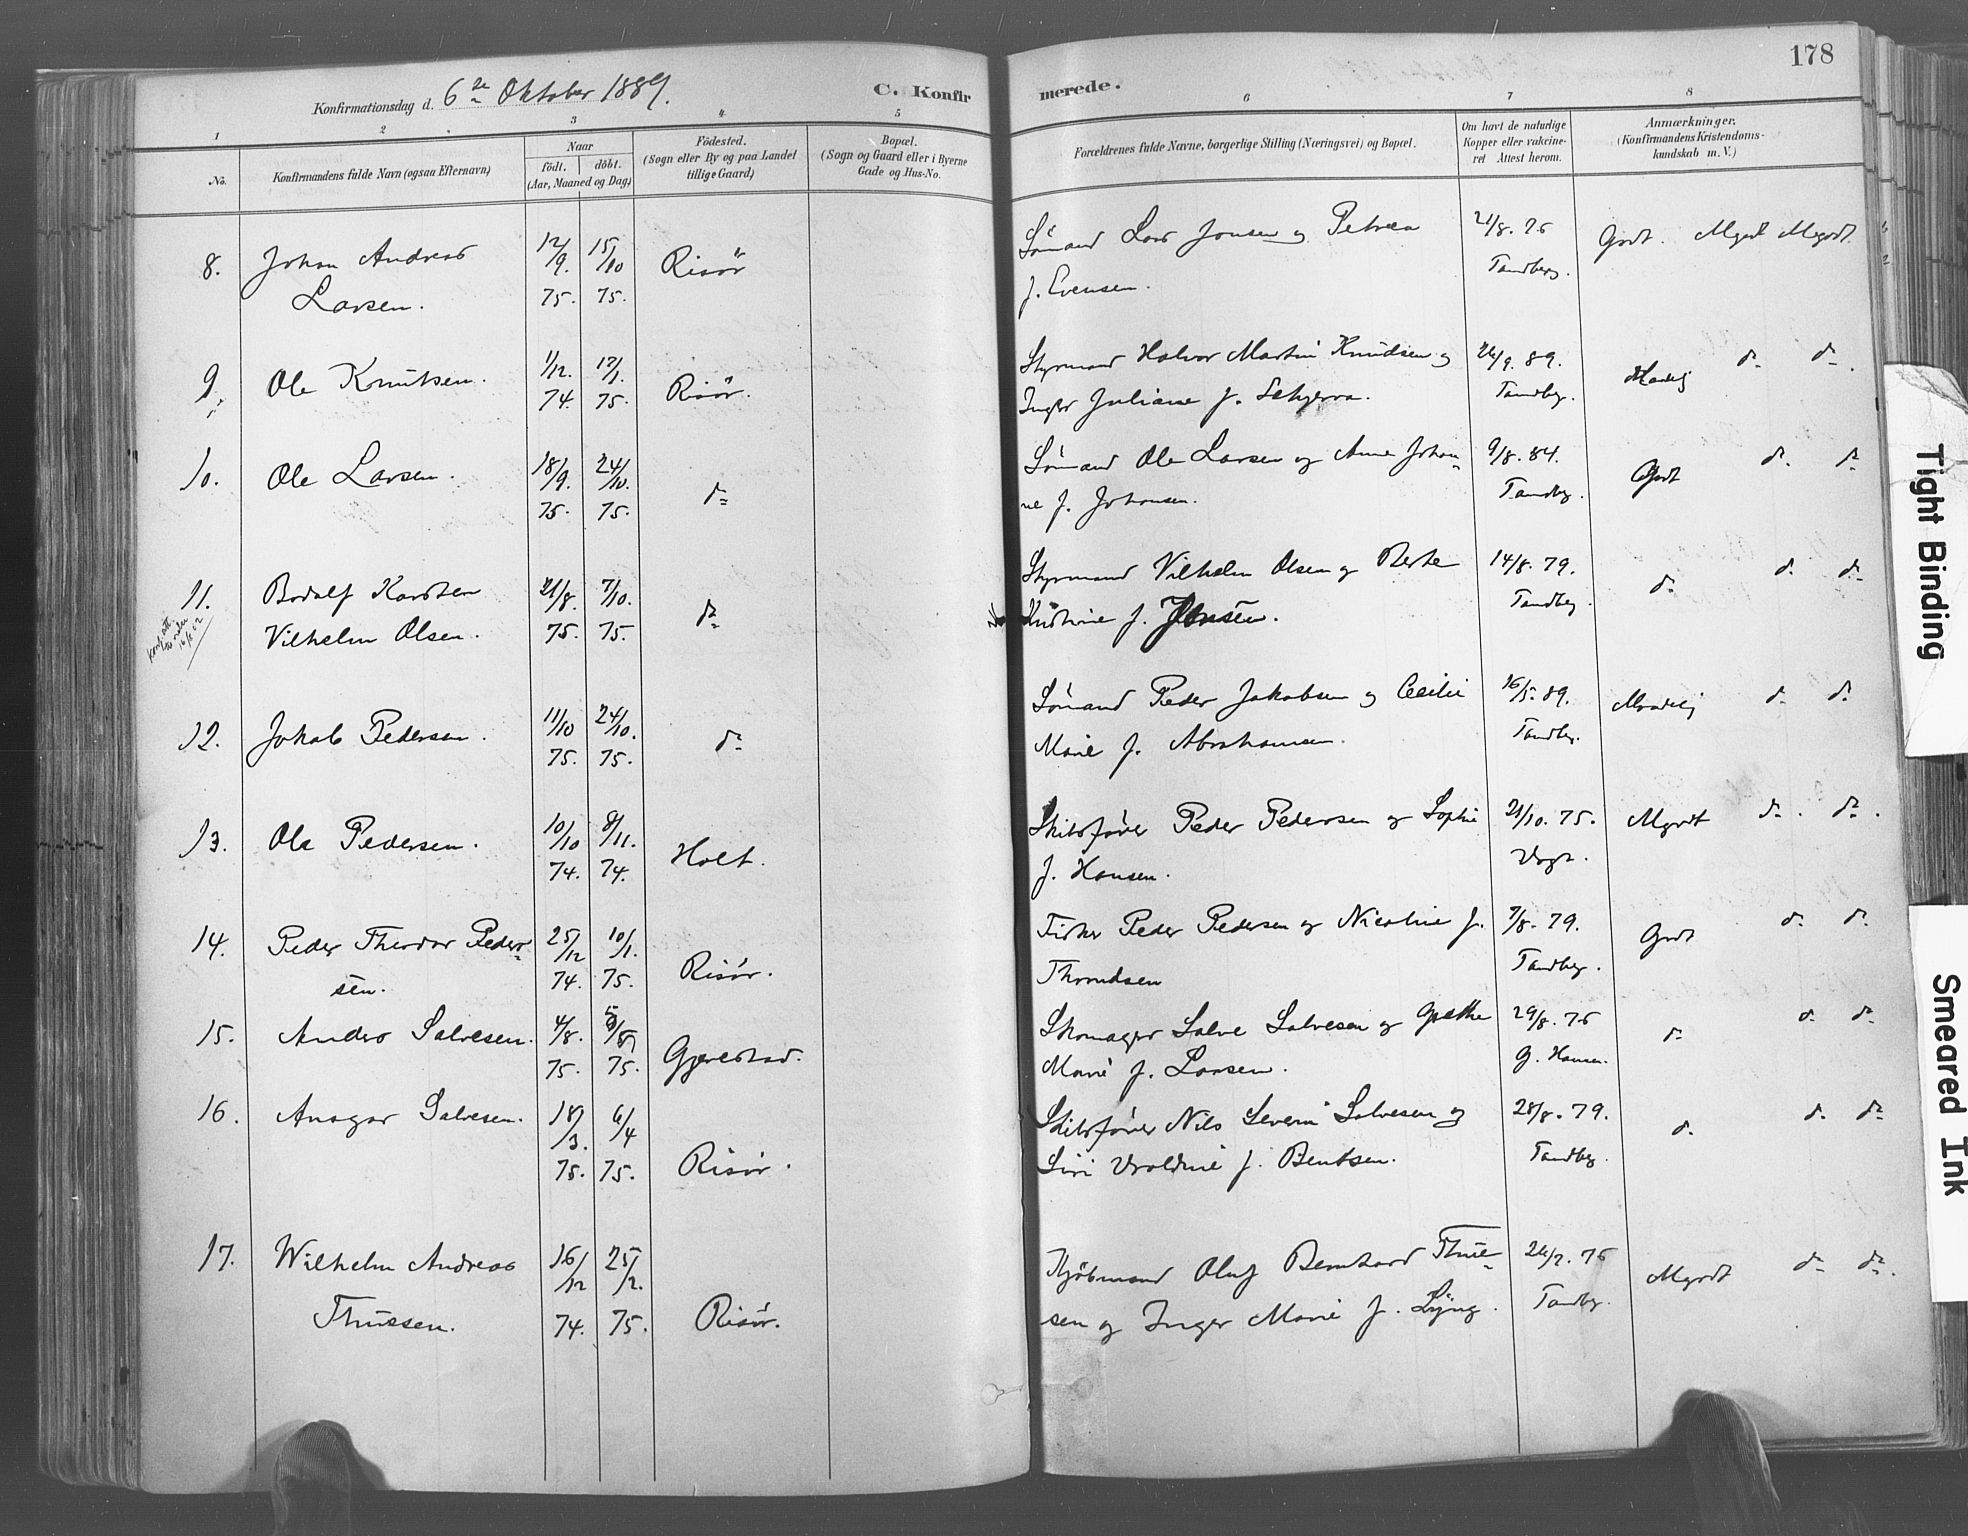 178
Konfirmationsdag d. 6te Oktober 1889.
C. Konfirmerede.
1 2 3 4 5 6 7 8
No.
Konfirmandens fulde Navn (ogsaa Efternavn)
Naar
födt. döbt.
(Aar, Maaned og Dag)
Födested.
(Sogn eller By og paa Landet
tillige Gaard)
Bopæl.
(Sogn og Gaard eller i Byerne
Gade og Hus-No.
Forældrenes fulde Navne, borgerlige Stilling (Næringsvei) og Bopæl.
Om havt de naturlige
Kopper eller vakcineret
Attest herom.
Anmærkninger,
(Konfirmandens Kristendomskundskab
m. V.)
8. Johan Andreas 12/9. 15/10 Risör Sömand Lars Jonsen og Petrea 21/8. 76 Godt. Mgodt Mgodt.
Larsen. 75. 75. f. Evensen. Tandberg.
9. Ole Knutsen. 1/12. 17/1. Risör. Styrmand Halvor Martin Knudsen og 26/9. 89. Maadelig do do
74. 75. Inger Juliane f. Tandbg.
10. Ole Larsen. 18/9. 24/10. do Sömand Ole Larsen og Anne Johan- 9/8. 84. Godt do do
75. 75. ne f. Johansen. Tandbg.
11. Bodolf Karsten 21/8. 7/10. do Styrmand Vilhelm Olsen og Berte 14/8. 79. do do do
Vilhelm Olsen. 75. 75. Kristine f. Jensen. Tandbg.
12. Jakob Pedersen. 11/10 24/10. do Sömand Peder Jakobsen og Cecilie 16/5. 89. Maadelig do do
75. 75. Marie f. Abrahamsen. Tandbg.
13. Ole Pedersen. 10/10 8/11. Holt. Skibsförer Peder Pedersen og Sophie 21/10. 75. Mgodt do do
74. 74. f. Hansen. Vogt.
14. Peder Theodor Peder- 25/12 10/1. Risör. Fisker Peder Pedersen og Nicoline f. 7/8. 79. Godt do do
sen. 74. 75. Throndsen Tandbg.
15. Anders Salvesen. 4/8. Gjerestad. Skomager Salve Salvesen og Grethe 29/8. 76 do do do
75. 75. Marie f. Larsen. G. Hansen.
16. Ansgar Salvesen. 18/3. 6/4 Risör. Skibsförer Nils Severin Salvesen og 28/8. 79. do do do
75. 75. Siri f. Bentsen. Tandbg.
17. Wilhelm Andreas 16/12 25/2. Risör. Kjöbmand Oluf Bernhard Thue- 26/2. 76 Mgodt do do
Thuesen. 74. 75. sen og Inger Marie f. Lÿng. Tandbg.
Tight Binding
Smeared Ink